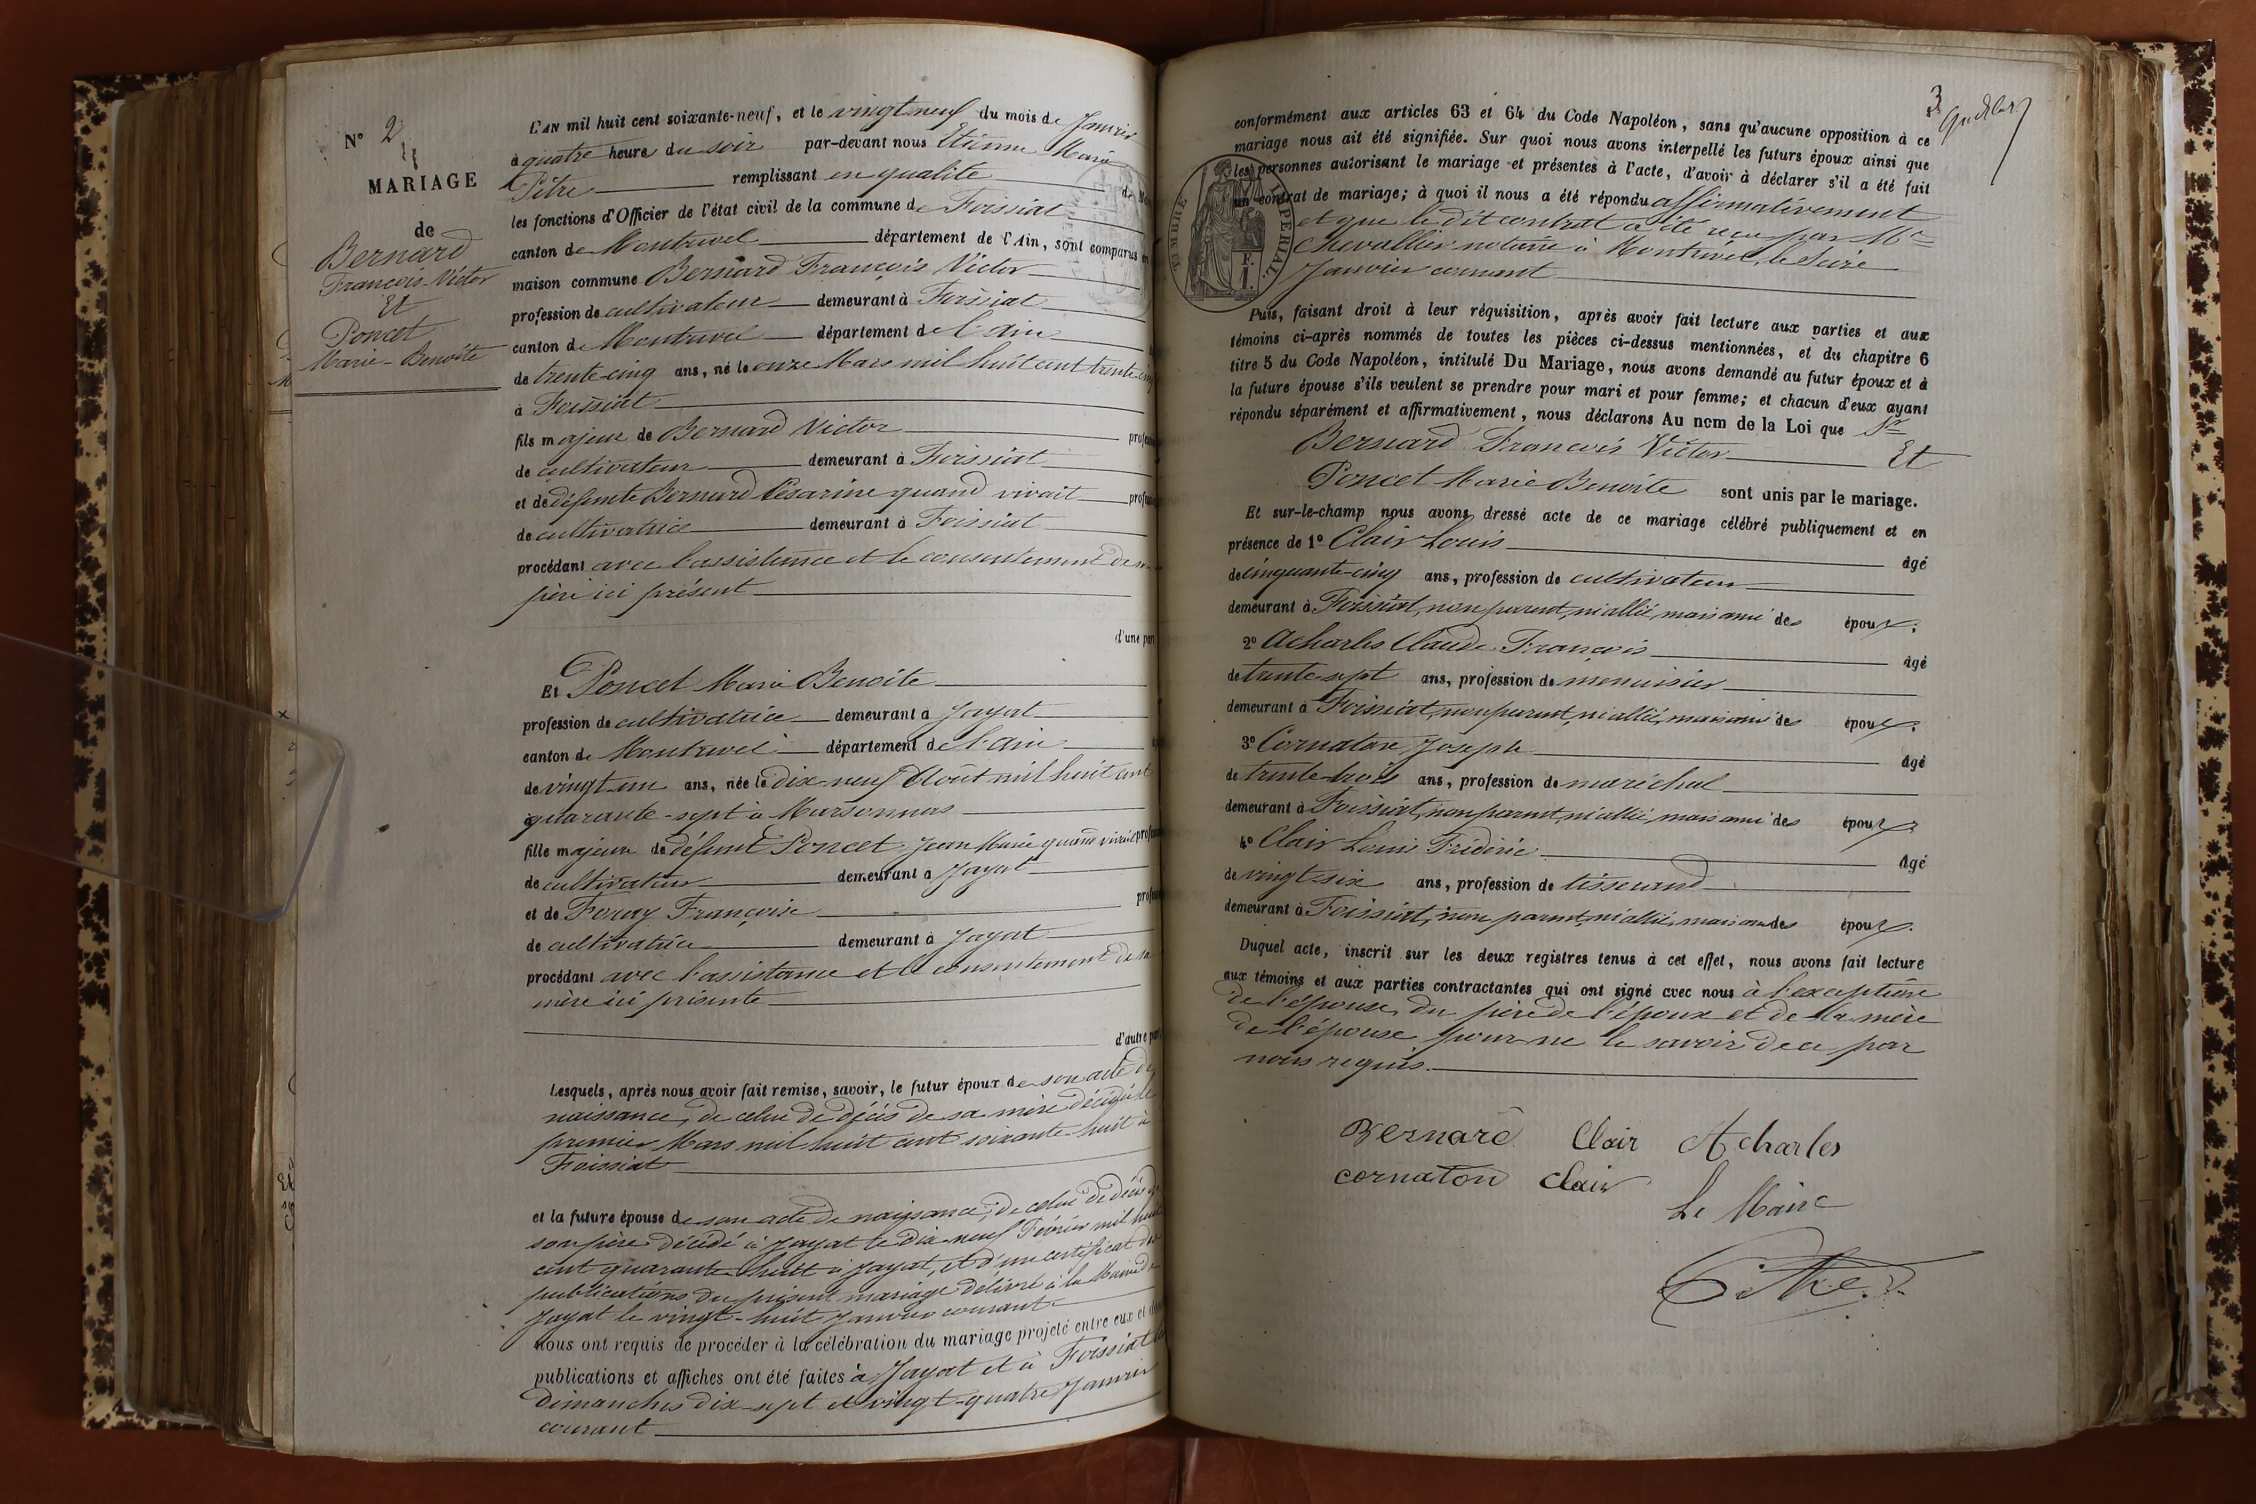 N° 2
MARIAGE
de
Bernard
François Victor
Et
Poncet
Marie-Benoîte
L'AN mil huit cent soixante-neuf, et le vingt neuf du mois de Janvier
à quatre heures du soir par-devant nous Etienne Marie
Pitre remplissant en qualité de
les fonctions d'Officier de l'état civil de la commune de Foissiat
canton de Montrevel département de l'Ain, sont comparus en
maison commune Bernard François Victor
profession de cultivateur demeurant à Foissiat
canton de Montrevel département de l'ain
de trente-cinq ans, né le onze Mars mil huit cent trente
à Foissiat
fils majeur de Bernard Victor
de cultivateur demeurant à Foissiat
et de défunte Bernard Césarine quand vivait
de cultivatrice demeurant à Foissiat
procédant avec l'assistance et le consentement de
père ici présent
d'une part
Et Poncet Marie Benoîte
profession de cultivatrice demeurant à Jayat
canton de Montrevel département de l'ain
de vingt-un ans, née le dix-neuf Août mil huit cent
quarante-sept à Marsonnas
fille majeure de défunt Poncet Jean Marie quand vivait
de cultivateur demeurant à Jayat
et de Foray Françoise
de cultivatrice demeurant à Jayat
procédant avec l'assistance et le consentement de sa
mère ici présente
d'autre part
Lesquels, après nous avoir fait remise, savoir, le futur époux de son acte de
naissance, de celui de décès de sa mère décédée le
premier Mars mil huit cent soixante-huit à
Foissiat
et la future épouse de son acte de naissance, de celui de décès de
son père décédé à Jayat le dix-neuf Février mil huit
cent quarante-huit à Jayat, et d'un certificat des
publications du présent mariage délivré à la Mairie de
Jayat le vingt-huit Janvier courant
nous ont requis de procéder à la célébration du mariage projeté entre eux et
publications et affiches ont été faites à Jayat et à Foissiat les
dimanches dix-sept et vingt-quatre Janvier
courant
3
conformément aux articles 63 et 64 du Code Napoléon, sans qu'aucune opposition à ce
mariage nous ait été signifiée. Sur quoi nous avons interpellé les futurs époux ainsi que
les personnes autorisant le mariage et présentes à l'acte, d'avoir à déclarer s'il a été fait
un contrat de mariage; à quoi il nous a été répondu affirmativement
et que le dit contrat a été reçu par Me
Chevallier notaire à Montrevel, le Seize
Janvier courant
TIMBRE IMPERIAL.
Puis, faisant droit à leur réquisition, après avoir fait lecture aux parties et aux
témoins ci-après nommés de toutes les pièces ci-dessus mentionnées, et du chapitre 6
titre 5 du Code Napoléon, intitulé Du Mariage, nous avons demandé au futur époux et à
la future épouse s'ils veulent se prendre pour mari et pour femme; et chacun d'eux ayant
répondu séparément et affirmativement, nous déclarons Au nom de la Loi que Sr
Bernard François Victor Et
Poncet Marie Benoite sont unis par le mariage.
Et sur-le-champ nous avons dressé acte de ce mariage célébré publiquement et en
présence de 1° Clair Louis âgé
de cinquante-cinq ans, profession de cultivateur
demeurant à Foissiat, non parent, ni allié, mais ami des époux.
2° Acharles Claude François âgé
de trente-sept ans, profession de menuisier
demeurant à Foissiat, non parent, ni allié, mais ami des époux.
3° Cornaton Joseph âgé
de trente-trois ans, profession de maréchal
demeurant à Foissiat, non parent, ni allié, mais ami des époux
4° Clair Louis Fréderic âgé
de vingt-six ans, profession de tisserand
demeurant à Foissiat, non parent, ni allié, mais ami des époux.
Duquel acte, inscrit sur les deux registres tenus à cet effet, nous avons fait lecture
aux témoins et aux parties contractantes qui ont signé avec nous à l'exception
de l'épouse, du père de l'époux et de la mère
de l'épouse pour ne le savoir de ce par
nous requis.
Bernard Clair Acharles
cornaton Clair
Le Maire